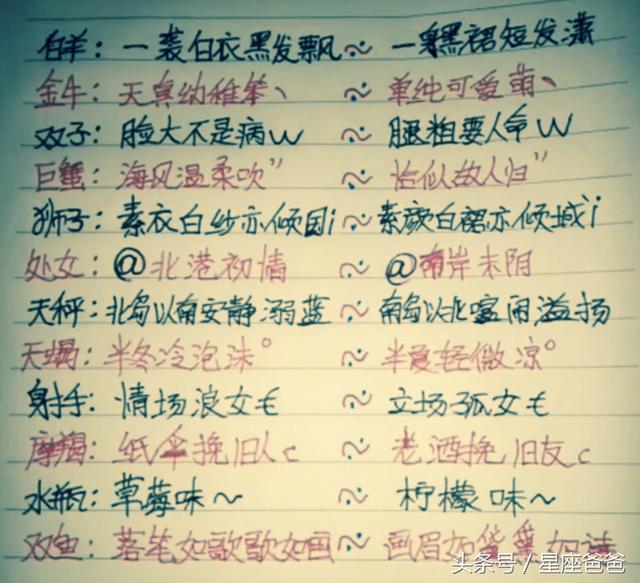 白羊：一袭白衣黑发飘～一身黑裙短发潇
金牛：天真幼稚笨丶～单纯可爱萌丶
双子：脸大不是病W～腿粗要人命W
巨蟹：海风温柔吹”～恰似故人归”
狮子：素衣白纱亦倾国i～素颜白裙亦倾城i
处女：@北港初情～@南岸末阴
天秤：北岛以南安静溺蓝～南岛以北喧闹溢扬
天蝎：半冬冷泡沫°～半夏轻微凉°
射手：情场浪女乇～立场孤女乇
摩羯：纸伞挽旧人c～老酒挽旧友c
水瓶：草莓味～～柠檬味～
双鱼：落笔如歌歌如画～画眉如 如诗
头条号／星座爸爸